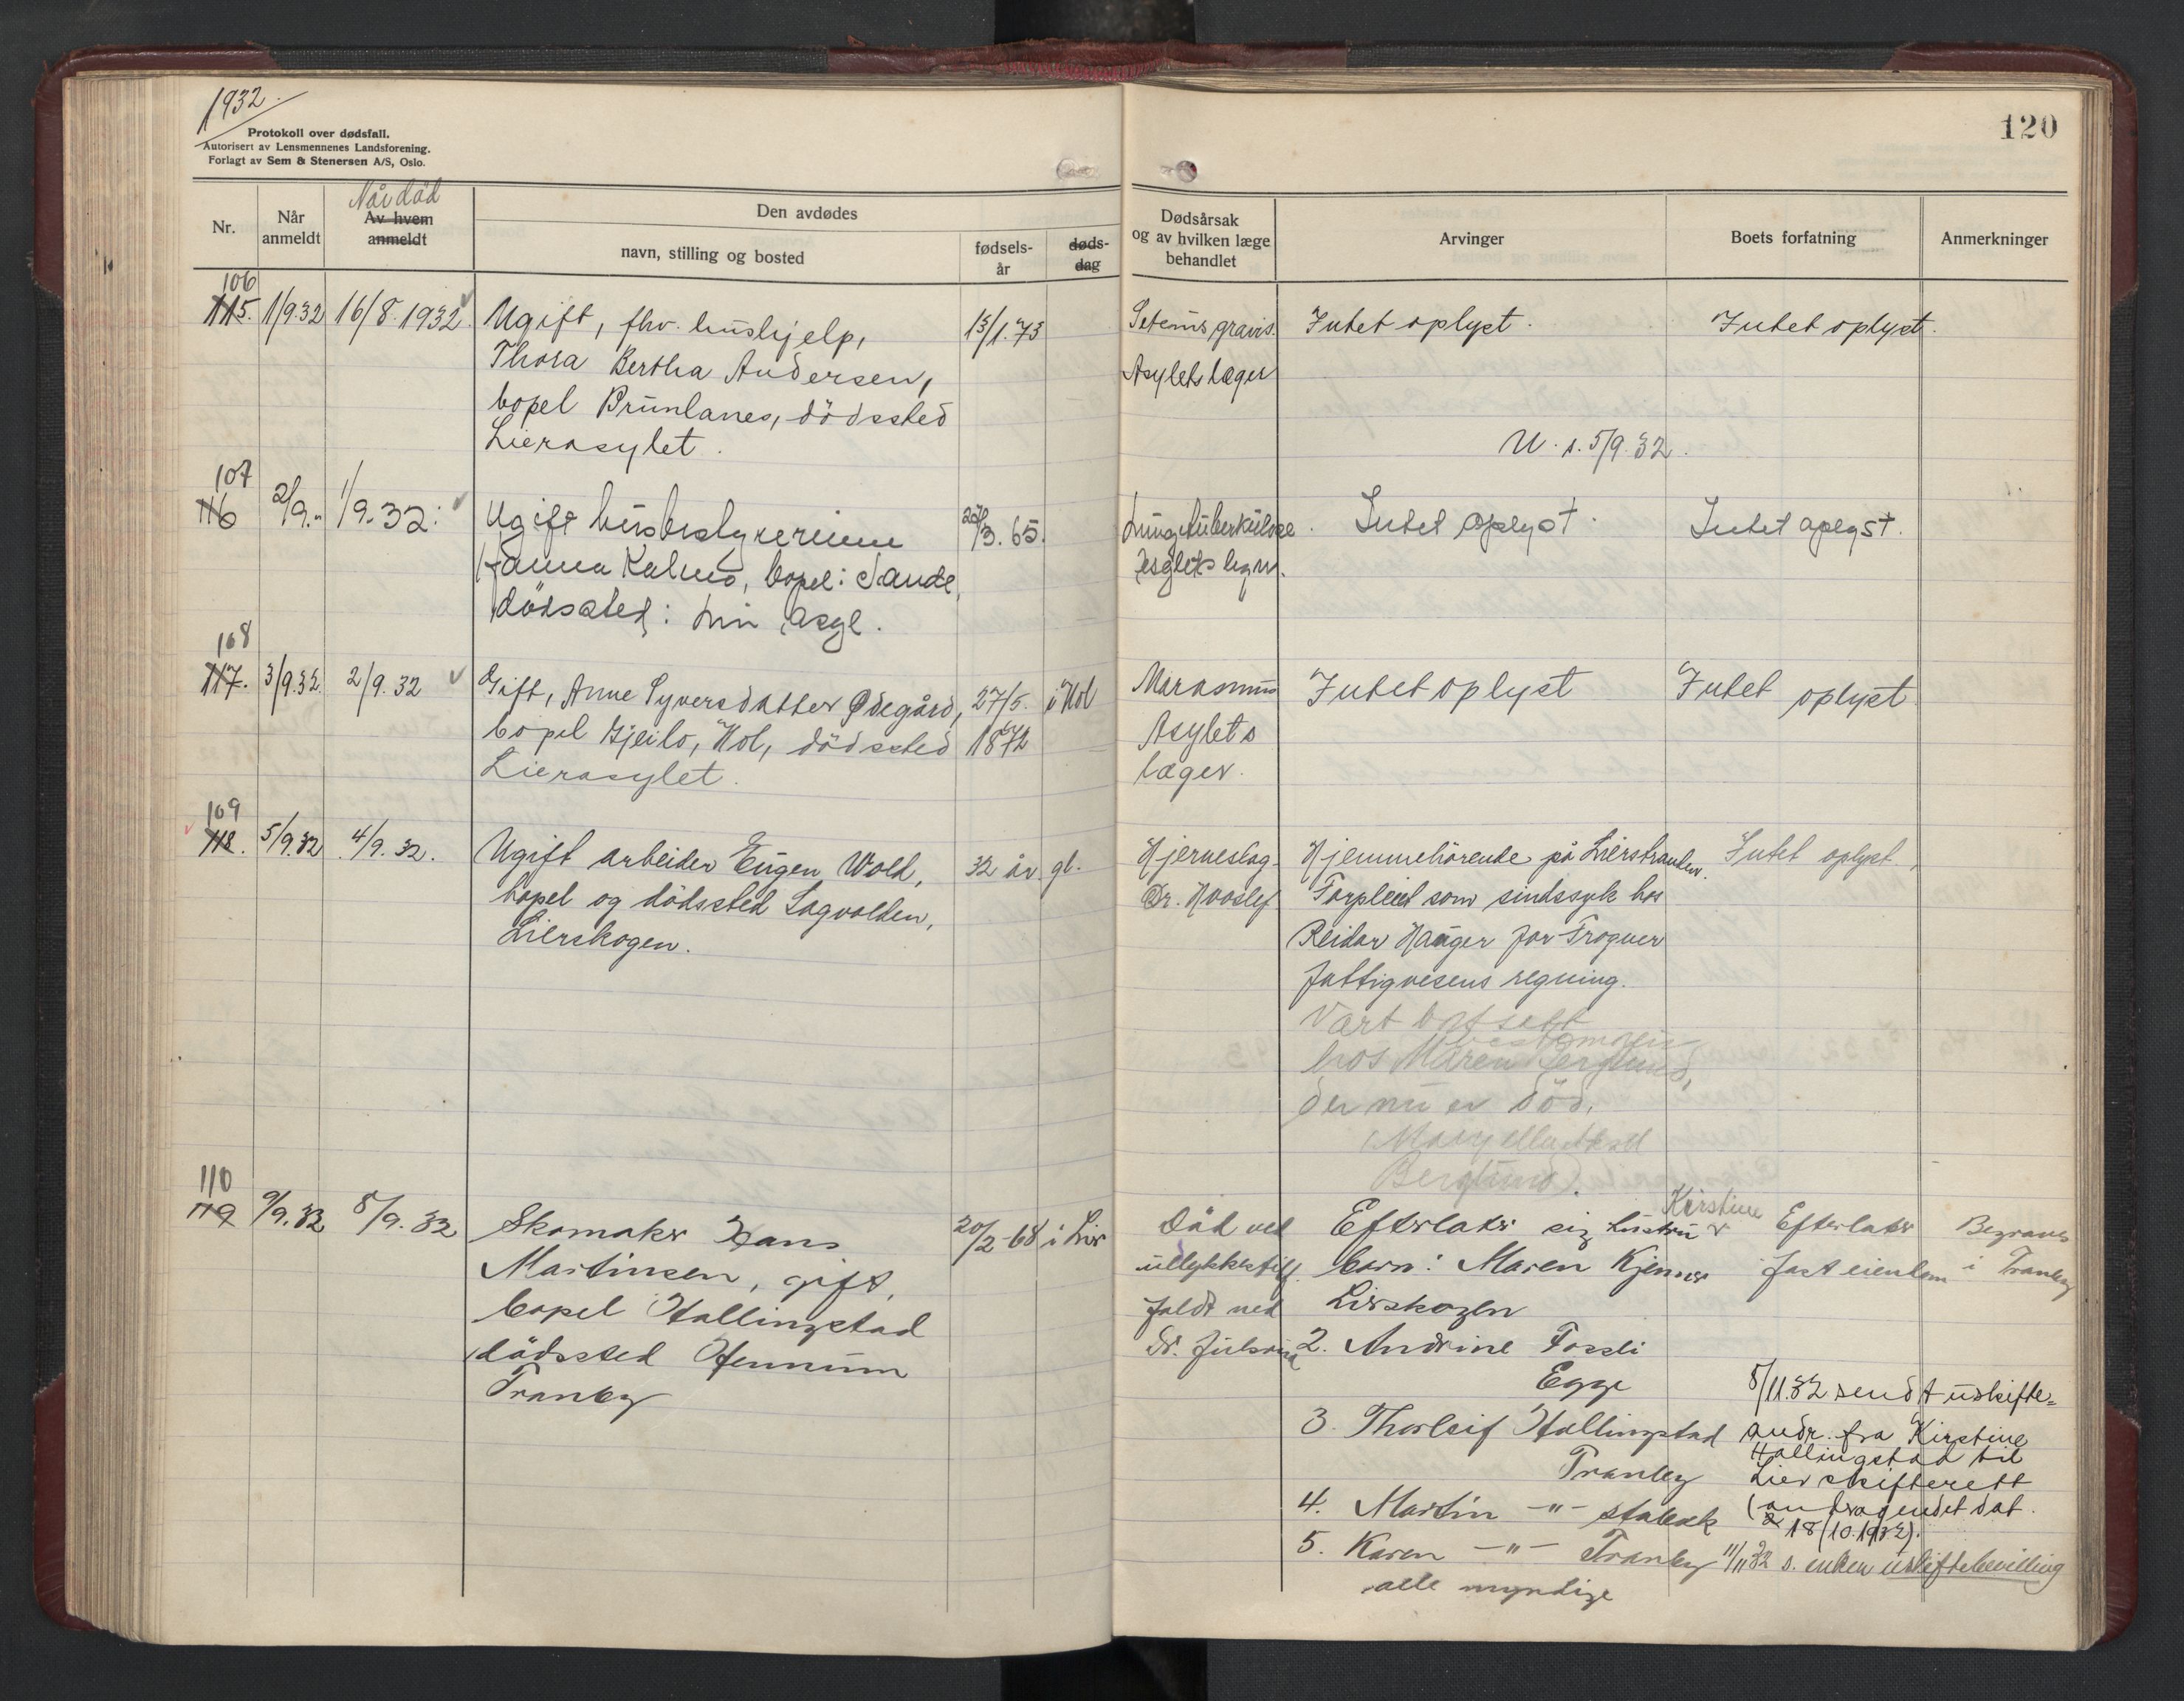 1932.
Protokoll over dødsfall.
Autorisert av Lensmennenes Landsforening.
Forlagt av Sem & Stenersen A/S, Oslo.
120
Nr.
Når anmeldt
Når død
Av hvem anmeldt
Den avdødes
navn, stilling og bosted
fødsels-år
døds-dag
Dødsårsak og av hvilken læge behandlet
Arvinger
Boets forfatning
Anmerkninger
106
115. 1/9.32 16/8.1932. Ugift, fhv. hushjelp, 13/1.73 gravis. Intet oplyst. Intet oplyst.
Thora Bertha Andersen, Asylets læger
bopel Brunlanes, dödssted
Lierasylet. U. s. 5/9.32.
107
116 2/9.. 1/9-32. Ugift husbestyrerinne 3.65. Lungetuberkulose. Intet oplyst. Intet oplyst.
Hanna Kalmo, bopel: Sande, Asylets læger.
dödssted: Lier Asyl.
108
117. 3/9.32. 2/9.32 Gift, Anne Syversdatter Ødegård, 27/5. i Hol Marasmus Intet oplyst Intet oplyst
bopel Gjeilo, Hol, dödssted 1872 Asylets
Lierasylet. læger.
109
118. 5/9.32 4/9.32. Ugift arbeider Eugen Wold, 32 år gl. Hjerneslag Hjemmehörende på Lierstranden. Intet oplyst.
bopel og dödssted Lagvolden, Dr. Forpleiet som sindssyk hos
Lierskogen. Reidar Hauger for Frogner
fattigvesens regning.
Vært bortsatt
hos Maren Berglund,
der nu er död.
Berglund).
110
119 9/9.32 8/9.32 Skomaker Hans 20/2-68 i Lier Död ved Efterlater sig hustru Kirstine Efterlater Begraves
Martinsen, gift, ullykkestilf. barn: Maren Kjenner fast eiendom i Tranby
bopel Hallingstad faldt ned Lierskogen
dödssted Hennum Dr. 2. Andrine Fossli
Tranby Egge 8/11.32 sendt uskifte=
3. Thorleif Hallingstad andr. fra Kirstine
Hallingstad til
Tranby Lier skifterett
4. Martin -"- Stabek (andragendet dat.
18/10.1932).
5. Karen -"- Tranby 11/11 32 s. enken uskiftebevilling
alle myndige